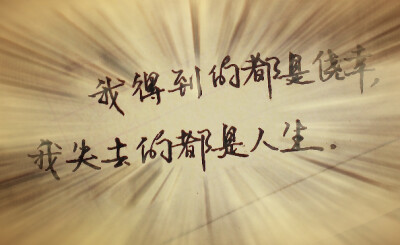 我得到的都是侥幸,
我失去的都是人生.